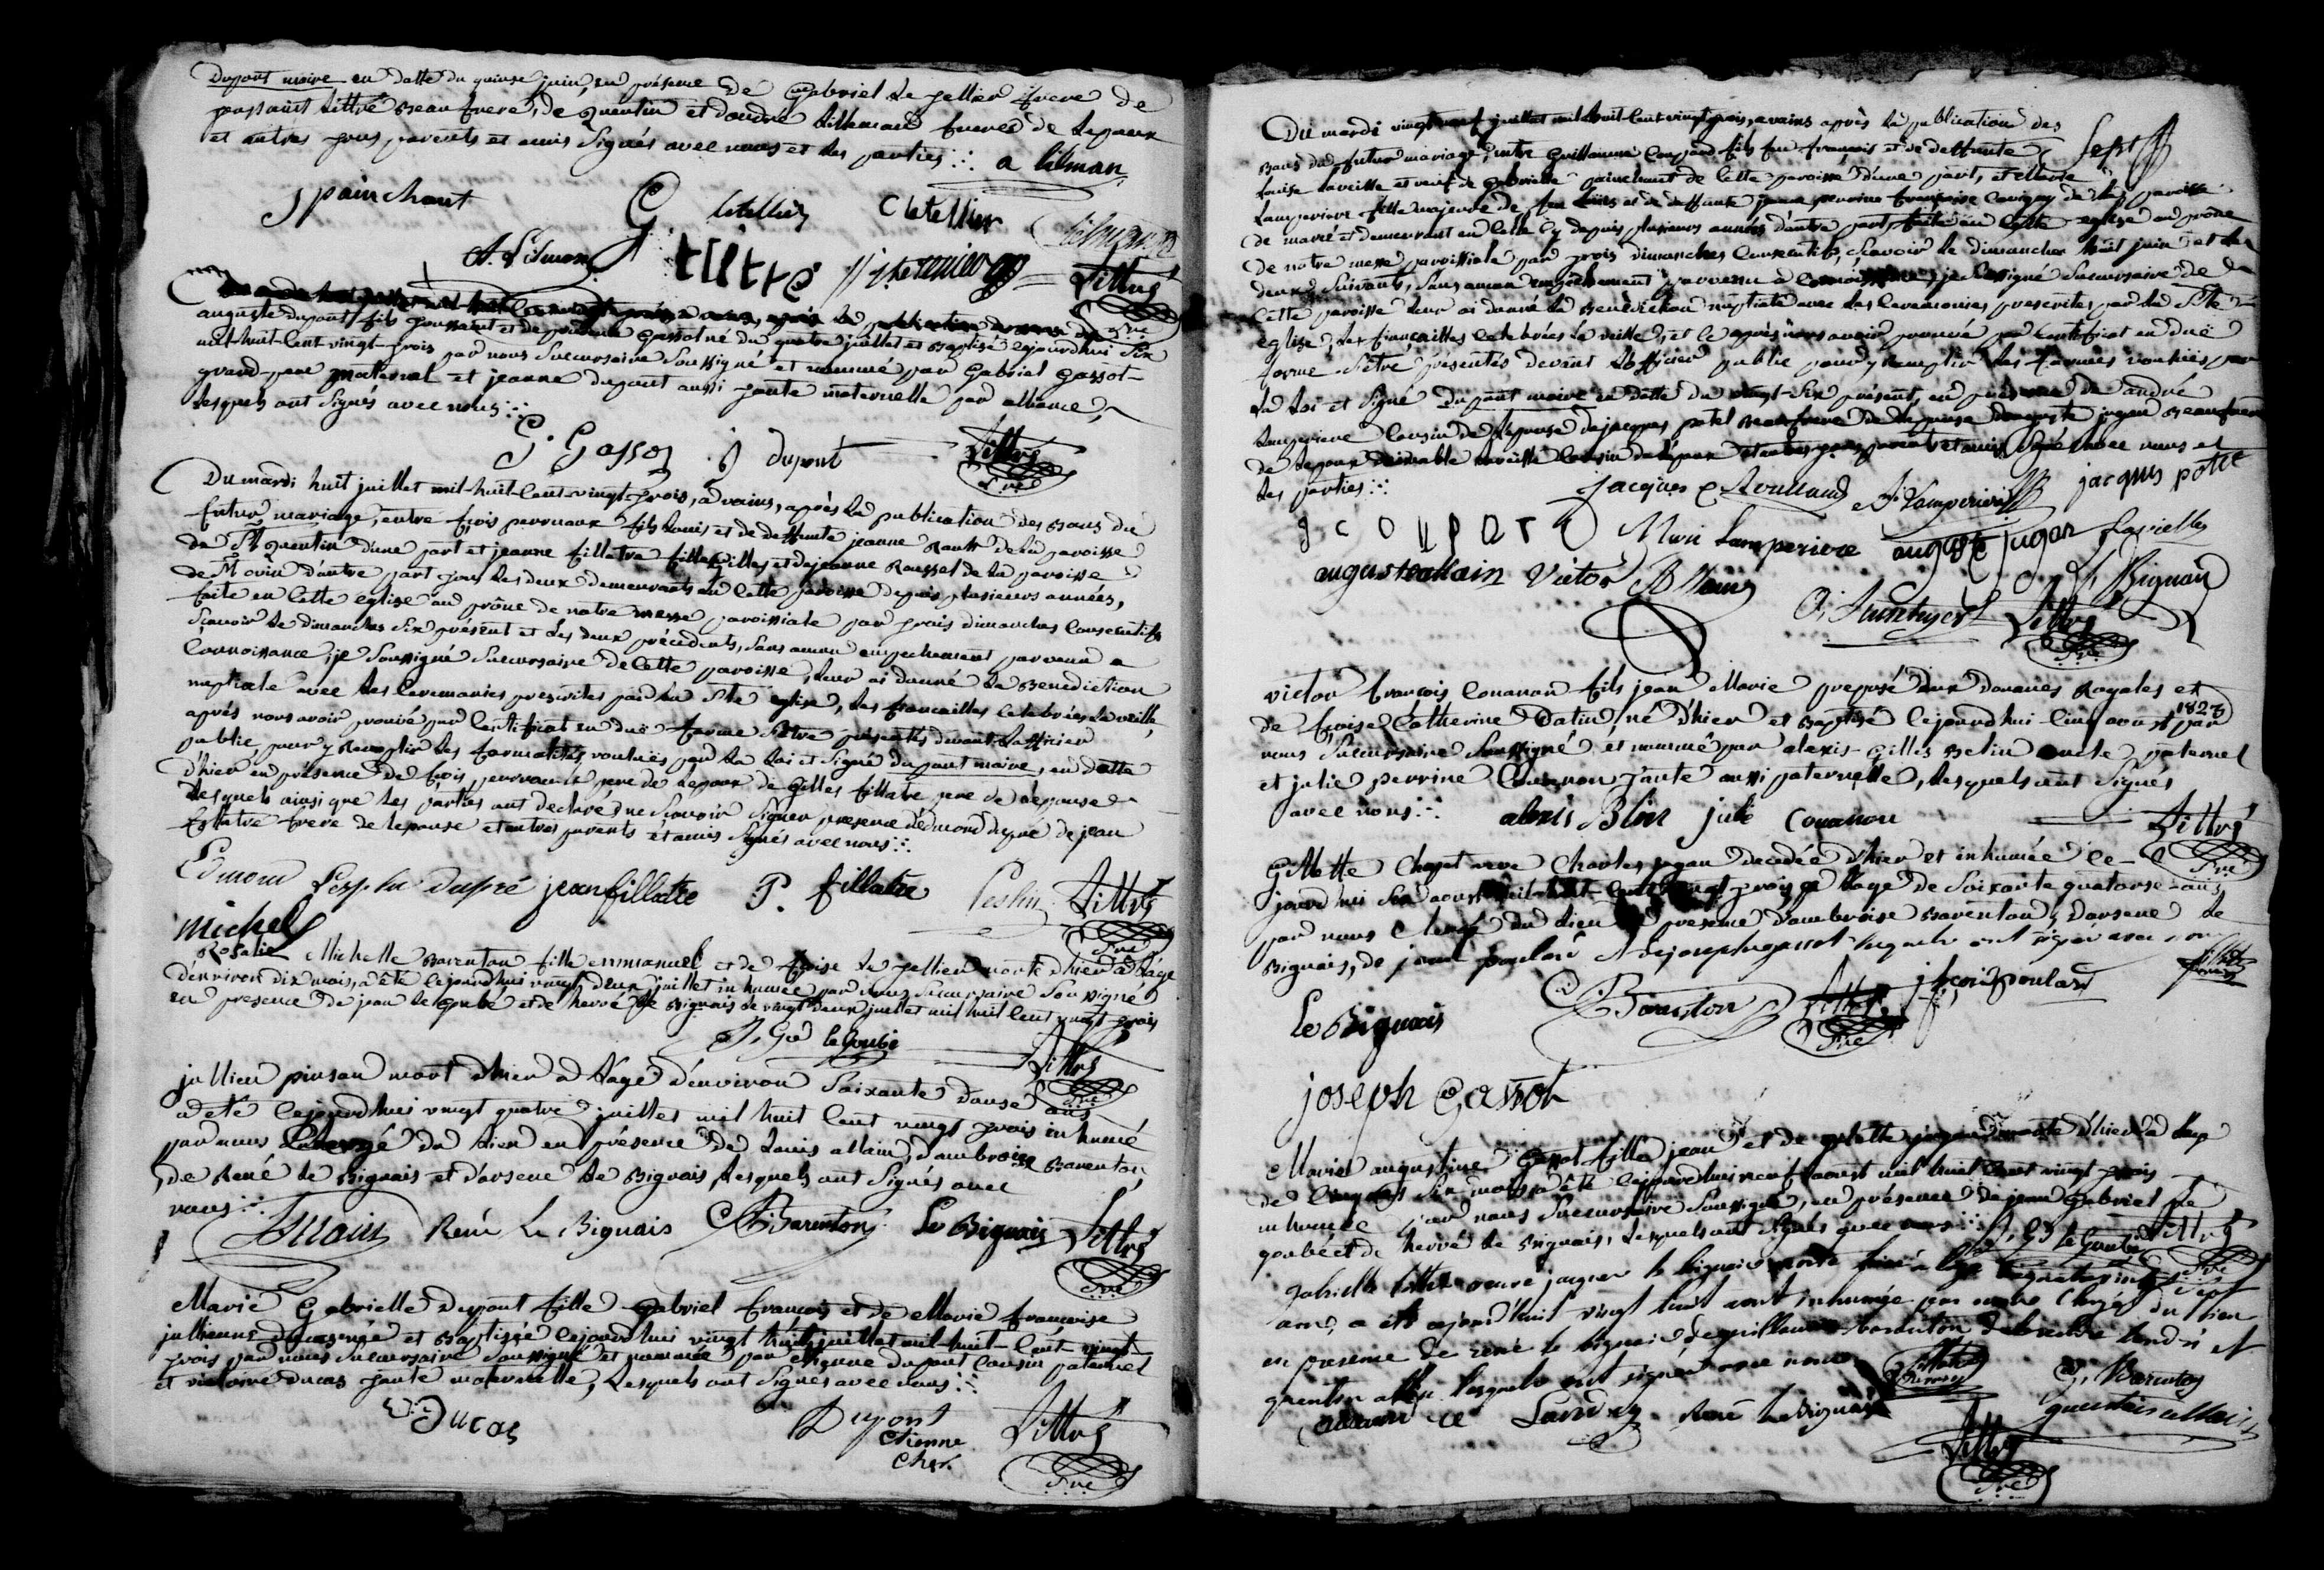 Dupont maire en datte du quinse juin, en présence de Gabriel Le pellier frere de
poussaint Littré Beau frere, de Quentin et d'andré Lillemand freres de Lepoux
et autres tous parents et amis Signés avec nous et les parties ∴ a lilman
J painchant G letellier C letellier
A. Lilman Littré
auguste dupont fils poussaint et de gassot né du quatre juillet et Baptisé cejourdhui Six
mil-huit-Cent vingt-trois par nous Succursaire Soussigné et nommé par Gabriel Gassot
grand-pere maternel et jeanne dupont aussi tante maternelle par alliance,
lesquels ont Signés avec nous ∴
G. Gassot J dupont Littré
Ptre
Du mardi huit juillet mil-huit-Cent-vingt-trois, a vains, après la publication des Bans du
futur mariage, entre fçois pervaux fils Louis et de deffunte jeanne Rault de la paroisse
de St Quentin d'une part et jeanne fillatre fille gilles et de jeanne Roussel de la paroisse
de d'autre part tous les deux demeurants en Cette paroisse depuis plusieurs années,
faite en Cette eglise au prône de notre messe paroissiale par trois dimanches Consecutifs
Sçavoir le dimanche Six présent et les deux précédents, Sans aucun empechement parvenu a
Connoissance, je Soussigné Succursaire de Cette paroisse, leur ai donné la Benediction
nuptiale avec les Ceremonies prescrites par la Ste eglise, les fiancailles Celebrées la veille,
après nous avoir prouvé par Certificat en duë forme S'etre présentés devant l'officier
public, pour y Remplir les formalités, voulues par la Loi et Signé dupont maire, en datte
d'hier en présence de fçois pervaux pere de Lepoux de gilles fillatre pere de Lépouse
lesquels ainsi que les parties ont declaré ne Scavoir Signer presence d'edmond dupré de jean
fillatre frere de Lepouse et autres parents et amis Signés avec nous ∴
Edmond dupré jean fillatre P. fillatre Peslin Littré
Ptre
michel
Rosalie Michelle Barenton fille emmanuel et de fçoise Le pellier morte d'hier a L'age
d'environ dix mois, a été cejourdhui vingt deux juillet inhumée par nous Succursaire Soussigné
en presence de jean Le goubé et de hervé Le Bignais le vingt deux juillet mil huit Cent vingt trois
J, Gd le Goubé Littré
Ptre
jullien pinson mort d'hier a L'age d'environ Soixante douse ans
a été Cejourdhui vingt quatre juillet mil huit Cent vingt trois inhumé
par nous Chargé du Lieu en présence de Louis allain, d'ambroise Barenton,
de René Le Bignais et d'arsene Le Bignais, lesquels ont Signés avec
nous ∴
L allain René Le Bignais A Barenton Le Bignais Littré
Ptre
Marie Gabrielle Dupont fille Gabriel françois et de Marie françoise
jullienne ducas née et Baptisée Cejourdhui vingt huit juillet mil-huit-Cent-vingt-
trois par nous Succursaire Soussigné et nommée par etienne dupont Cousin paternel
et victoire Ducas tante maternelle, lesquels ont Signés avec nous ∴
V Ducas Dupont Littré
Etienne
Ptre
Du mardi vingt neuf juillet mil-huit-Cent-vingt-trois, a vains après la publication des
Bans du futur mariage entre Guillaume Coupard fils feu françois et de deffunte
Louise Laveille et veuf de Gabrielle painchant de Cette paroisse d'une part, et Marie
Lamperiere fille majeure de feu Louis et de deffunte jeanne perrine françoise de la paroisse
de marcé et demeurant en Celle Cy depuis plusieurs années d'autre part, faite en Cette eglise au prône
de notre messe paroissiale par trois dimanches Consecutifs, Scavoir le dimanche huit juin et les
deux Suivants, Sans aucun empechement parvenu a Connoissance, je Soussigné Succursaire de
Cette paroisse leur ai donné la Benediction nuptiale avec les Ceremonies prescrites par la Ste
Eglise, les fiançailles Celebrées la veille, et ce après nous avoir prouvé par Certificat en duë
forme S'etre présentés devant L'officier public pour y Remplir les formes voulues par
la Loi et Signé Dupont maire en datte du vingt-Six présent, en présence de d'andré
Lamperiere Cousin de Lépouse de jacques potel Beau frere de Lépouse d'auguste jugan Beau frere
de Lepoux d'aimable Laveille Cousin de Lepoux et autres tous parents et amis Signés avec nous et
les parties ∴
Jacques C Roulland A. Lamperiere jacques potel
g coupart Marie Lamperiere auguste jugan Lavielle
auguste allain Victor Allain Bignais
Littré
Ptre
victor françois Couanon fils jean Marie preposé aux douanes Royales et
de fçoise Catherine Datin, né d'hier et Baptisé Cejourdhui Cinq aoust 1823 par
nous Succursaire Soussigné et nommé par alexis-Gilles Belin oncle paternel
et julie perrine Couanon tante aussi paternelle, lesquels ont Signés
avec nous ∴ alexis Blin julie Couanon Littré
Ptre
Gillette Chapet veuve Charles jugan decedée d'hier et inhumée ce-
jourdhui Six aoust mil-huit-Cent vingt trois a L'age de Soixante quatorse ans
par nous Chargé du Lieu en presence d'ambroise Barenton, d'arsene Le
Bignais, de jean poulard et de joseph gassot lesquels ont signés avec nous
Le Bignais A Barenton Littré j poulard
Ptre
joseph Gassot
Marie augustine Gassot fille jean et de gilette jugan morte d'hier a L'age
de Cinq ans Six mois, a été Cejourdhui neuf aoust mil huit Cent vingt trois
inhumée par nous Succursaire Soussigné, en présence de jean Gabriel Le
goubé et de hervé Le Bignais, lesquels ont Signés avec nous ∴ J, Gd le Goubé Littré
Ptre
gabrielle veuve jacques le bignais morte a l'age sept
ans, a été aujourd'huit vingt huit aout inhumée par nous Chargé du lieu
en presence de rené le bignais, de guillaume barenton de landri et
quentin allain lesquels ont signer avec nous
Landry René Le Bignais G. Barenton
quentin allain
Littré
Ptre